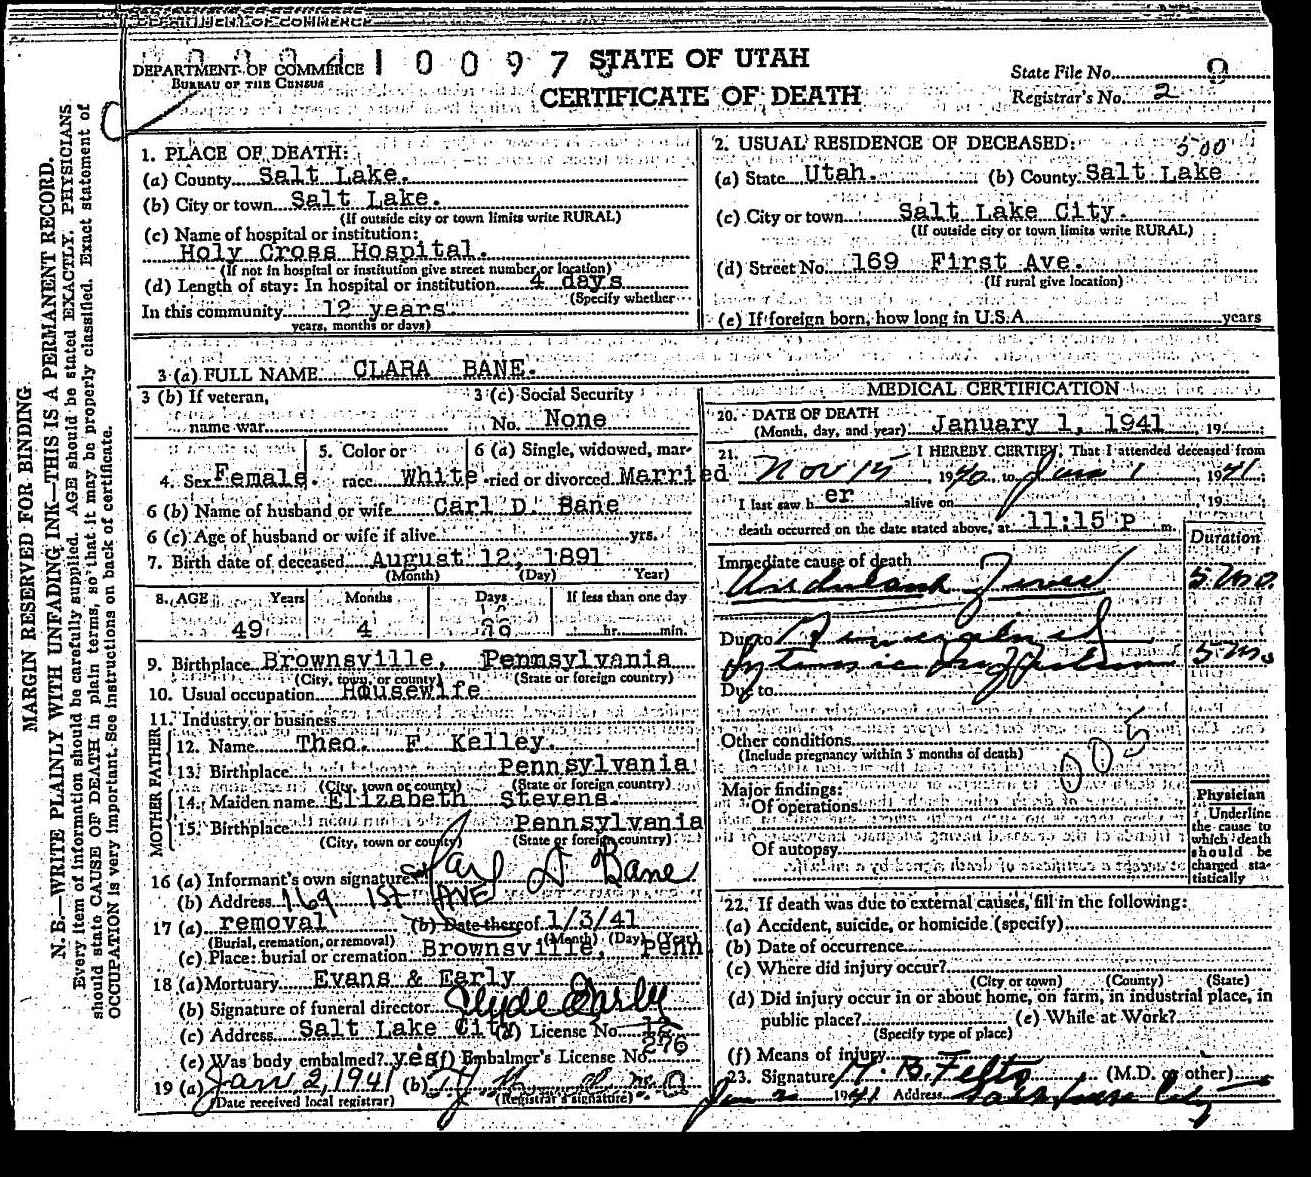 STATE OF UTAH
DEPARTMENT OF COMMERCE
BUREAU OF THE CENSUS
CERTIFICATE OF DEATH
State File No. 9
Registrar's No. 2
MARGIN RESERVED FOR BINDING
N. B.—WRITE PLAINLY WITH UNFADING INK—THIS IS A PERMANENT RECORD.
Every item of information should be carefully supplied. AGE should be stated EXACTLY. PHYSICIANS
should state CAUSE OF DEATH in plain terms, so that it may be properly classified. Exact statement of
OCCUPATION is very important. See instructions on back of certificate.
1. PLACE OF DEATH:
(a) County Salt Lake.
(b) City or town Salt Lake.
(If outside city or town limits write RURAL)
(c) Name of hospital or institution:
Holy Cross Hospital.
(If not in hospital or institution give street number or location)
(d) Length of stay: In hospital or institution 4 days
(Specify whether
In this community 12 years.
years, months or days)
2. USUAL RESIDENCE OF DECEASED:
500
(a) State Utah. (b) County Salt Lake
(c) City or town Salt Lake City.
(If outside city or town limits write RURAL)
(d) Street No. 169 First Ave.
(If rural give location)
(e) If foreign born, how long in U.S.A. years
3 (a) FULL NAME CLARA BANE.
3 (b) If veteran, name war
3 (c) Social Security No. None
4. Sex Female. 5. Color or race White 6 (a) Single, widowed, married or divorced Married
6 (b) Name of husband or wife Carl D. Bane
6 (c) Age of husband or wife if alive yrs.
7. Birth date of deceased August 12, 1891
(Month) (Day) Year)
8. AGE Years Months Days If less than one day
49 4 hr. min.
9. Birthplace Brownsville, Pennsylvania
(City, town, or county) (State or foreign country)
10. Usual occupation Housewife
11. Industry or business
FATHER
12. Name Theo. F. Kelley.
13. Birthplace Pennsylvania
(City, town or county) (State or foreign country)
MOTHER
14. Maiden name Elizabeth Stevens.
15. Birthplace Pennsylvania
(City, town or county) (State or foreign country)
16 (a) Informant's own signature Carl D Bane
(b) Address 169 1st AVE
17 (a) removal (b) Date thereof 1/3/41
(Burial, cremation, or removal) (Month) (Day) (Year)
(c) Place: burial or cremation Brownsville, Penn
18 (a) Mortuary Evans & Early
(b) Signature of funeral director Clyde Early
(c) Address Salt Lake City (d) License No.
(e) Was body embalmed? yes (f) Embalmer's License No. 276
19 (a) Jan 2, 1941 (b)
(Date received local registrar) (Registrar's signature)
MEDICAL CERTIFICATION
20. DATE OF DEATH
(Month, day, and year) January 1, 1941, 19
21. I HEREBY CERTIFY, That I attended deceased from
Nov 15, 1940, to Jan 1, 1941;
I last saw her alive on 19
death occurred on the date stated above, at 11:15 P m.
Duration
Immediate cause of death
5 Mo.
Due to
5 Mo
Due to
Other conditions
(Include pregnancy within 3 months of death)
005
Major findings:
Of operations
Of autopsy
Physician
Underline
the cause to
which death
should be
charged sta-
tistically
22. If death was due to external causes, fill in the following:
(a) Accident, suicide, or homicide (specify)
(b) Date of occurrence
(c) Where did injury occur?
(City or town) (County) (State)
(d) Did injury occur in or about home, on farm, in industrial place, in
public place? (e) While at Work?
(Specify type of place)
(f) Means of injury
23. Signature M. B. Felts (M.D. or other)
Jan 2 1941 Address Salt Lake City